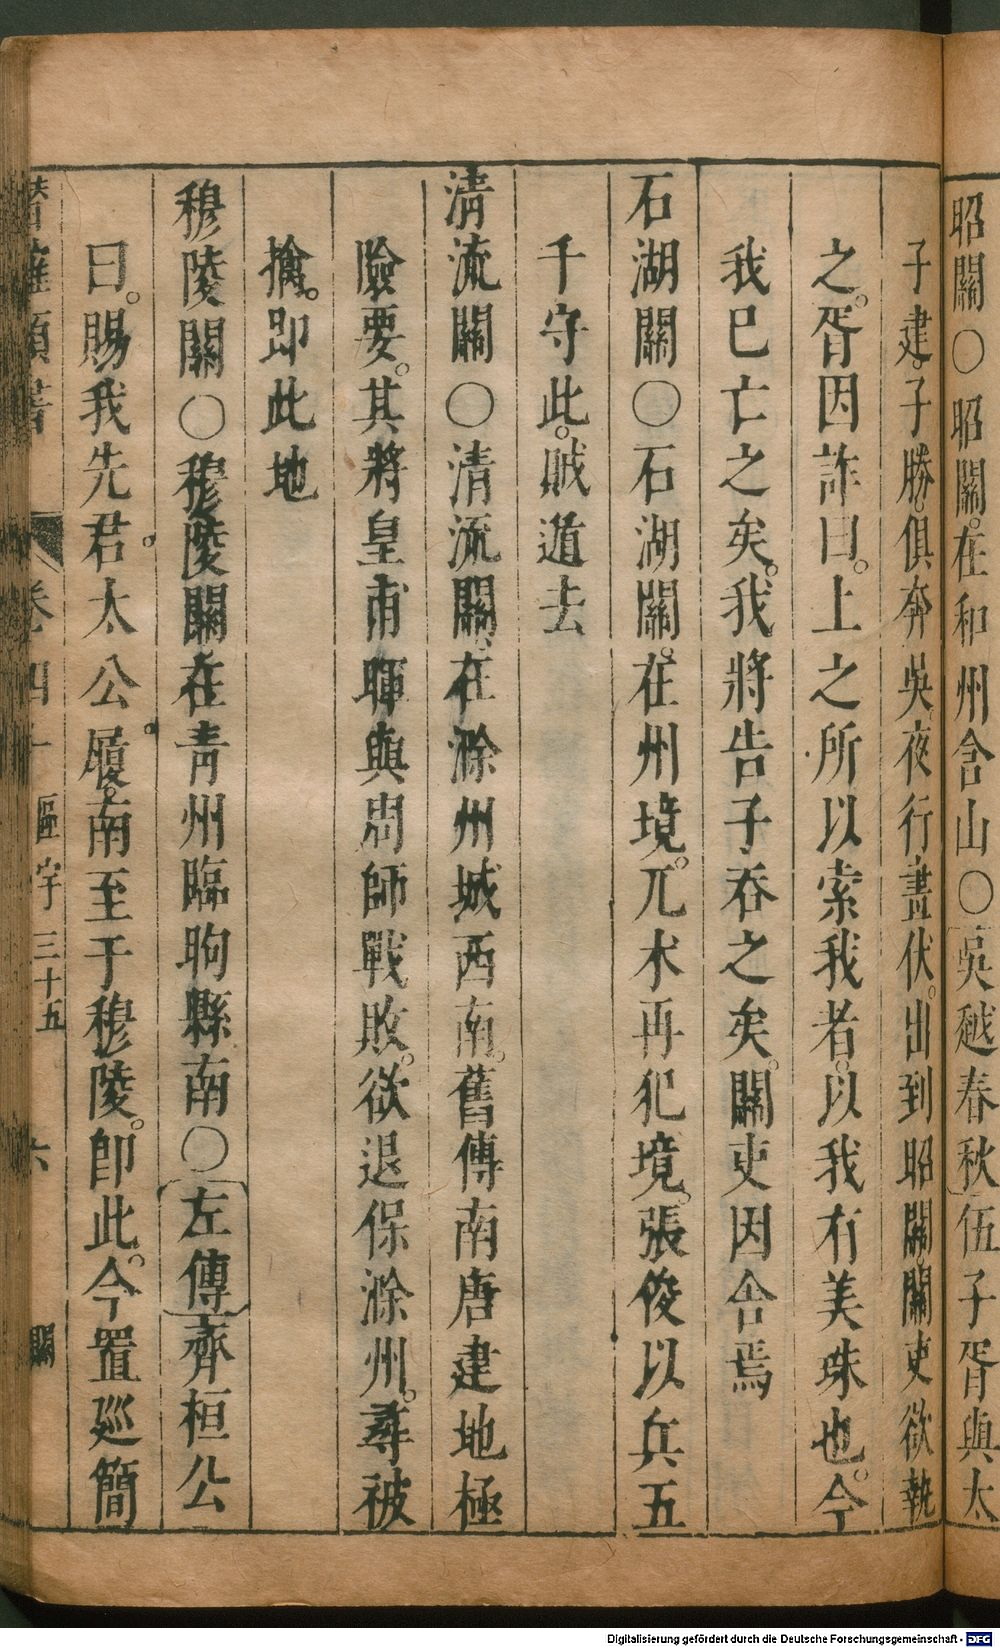 昭關○昭關。在和州含山○吳越春秋伍子胥與太
子建。子勝。俱奔吳。夜行晝伏。出到昭關。關吏欲執
之。胥因詐曰。上之所以索我者。以我有美珠也。今
我已亡之矣。我將告子吞之矣。關吏因舍焉
石湖關○石湖關。在州境。兀朮再犯境。張俊以兵五
千守此。賊遁去
清流關○清流關。在滁州城西南。舊傳南唐建地極
險要。其將皇甫暉與周師戰敗。欲退保滁州。尋被
擒。即此地
穆陵關○穆陵關在青州臨朐縣南○左傳齊桓公
曰。賜我先君。太公。履。南至于穆陵。即此。今置巡簡
卷四十 區宇三十五 六 關
Digitalisierung gefördert durch die Deutsche Forschungsgemeinschaft - DFG